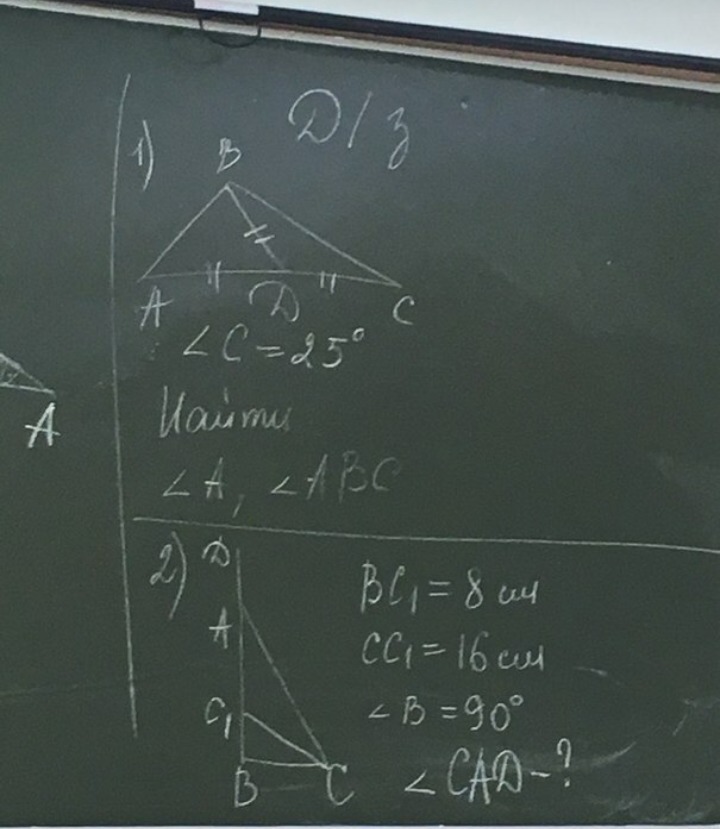 Д/з
1)
B
A D C
∠C = 25°
Найти
∠A, ∠ABC
A
2)
D
A
C₁
B C
BC₁ = 8 см
CC₁ = 16 см
∠B = 90°
∠CAD - ?